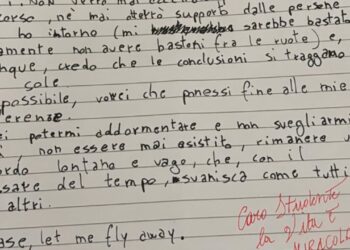 corso, ne' mai otterrò supporto dalle persone
ho intorno (mi sarebbe bastato
amente non avere bastoni fra le ruote) e,
nque, credo che le conclusioni si traggano
sole
possibile, vorei che ponessi fine alle mie
ferenze.
ei potermi addormentare e non svegliarmi
, non essere mai esistito, rimanere u
ordo lontano e vago, che, con il
ssare del tempo, svanisca come tutti
altri.
ase, let me fly away.
Caro Studente
la vita è
MIRACOLO